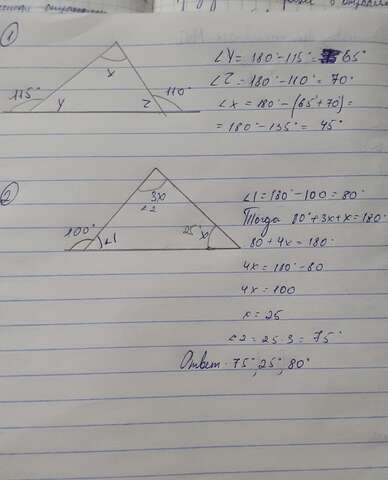 ①
∠Y = 180° - 115° = 65°
∠Z = 180° - 110° = 70°
∠X = 180° - (65° + 70°) =
= 180° - 135° = 45°
115°
Y
X
Z
110°
②
∠1 = 180° - 100 = 80°
Тогда 80° + 3x + x = 180°
80 + 4x = 180°
4x = 180° - 80
4x = 100
x = 25
∠2 = 25 · 3 = 75°
Ответ: 75°, 25°, 80°
100°
∠1
3x
∠2
25°
x